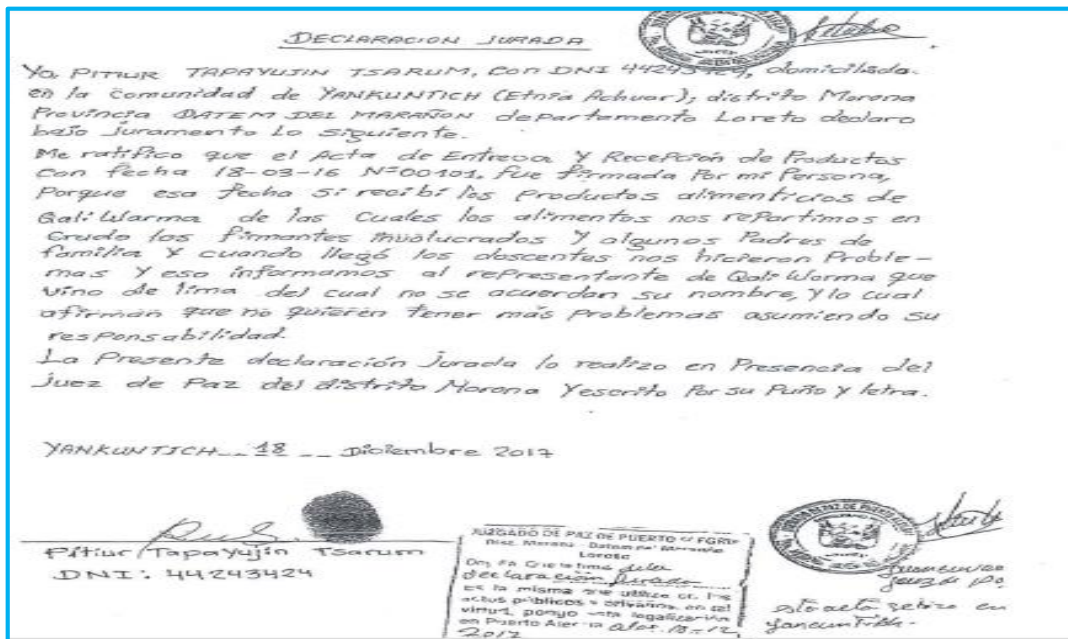 DECLARACION JURADA
Yo, PITIUR TAPAYUJIN TSARUM, con DNI domiciliada
en la comunidad de YANKUNTICH (Etnia Achuar); distrito Morona
Provincia DATEM DEL MARAÑON departamento Loreto declaro
bajo juramento lo siguiente.
Me ratifico que el Acta de Entrega y Recepción de Productos
con fecha 18-03-16 N=00101, fue firmada por mi Persona,
Porque esa fecha si recibí los Productos alimenticios de
Qali Warma de las cuales los alimentos nos repartimos en
crudo los firmantes involucrados y algunos Padres de
familia y cuando llegó los doscentes nos hicieron Proble-
mas y eso informamos al representante de Qali Warma que
vino de lima del cual no se acuerdan su nombre, y lo cual
afirman que no quieren tener más problemas asumiendo su
responsabilidad.
La Presente declaración jurada lo realizo en Presencia del
Juez de Paz del distrito Morona Yescrito Por su Puño y letra.
YANKUNTICH__ 18 __ Diciembre 2017
Pitiur Tapayujin Tsarum
DNI: 44243424
JUZGADO DE PAZ DE PUERTO
Loreto
declaración Jurada
es la misma que utiliza en los
actos públicos
virtud, pongo
en Puerto
2017